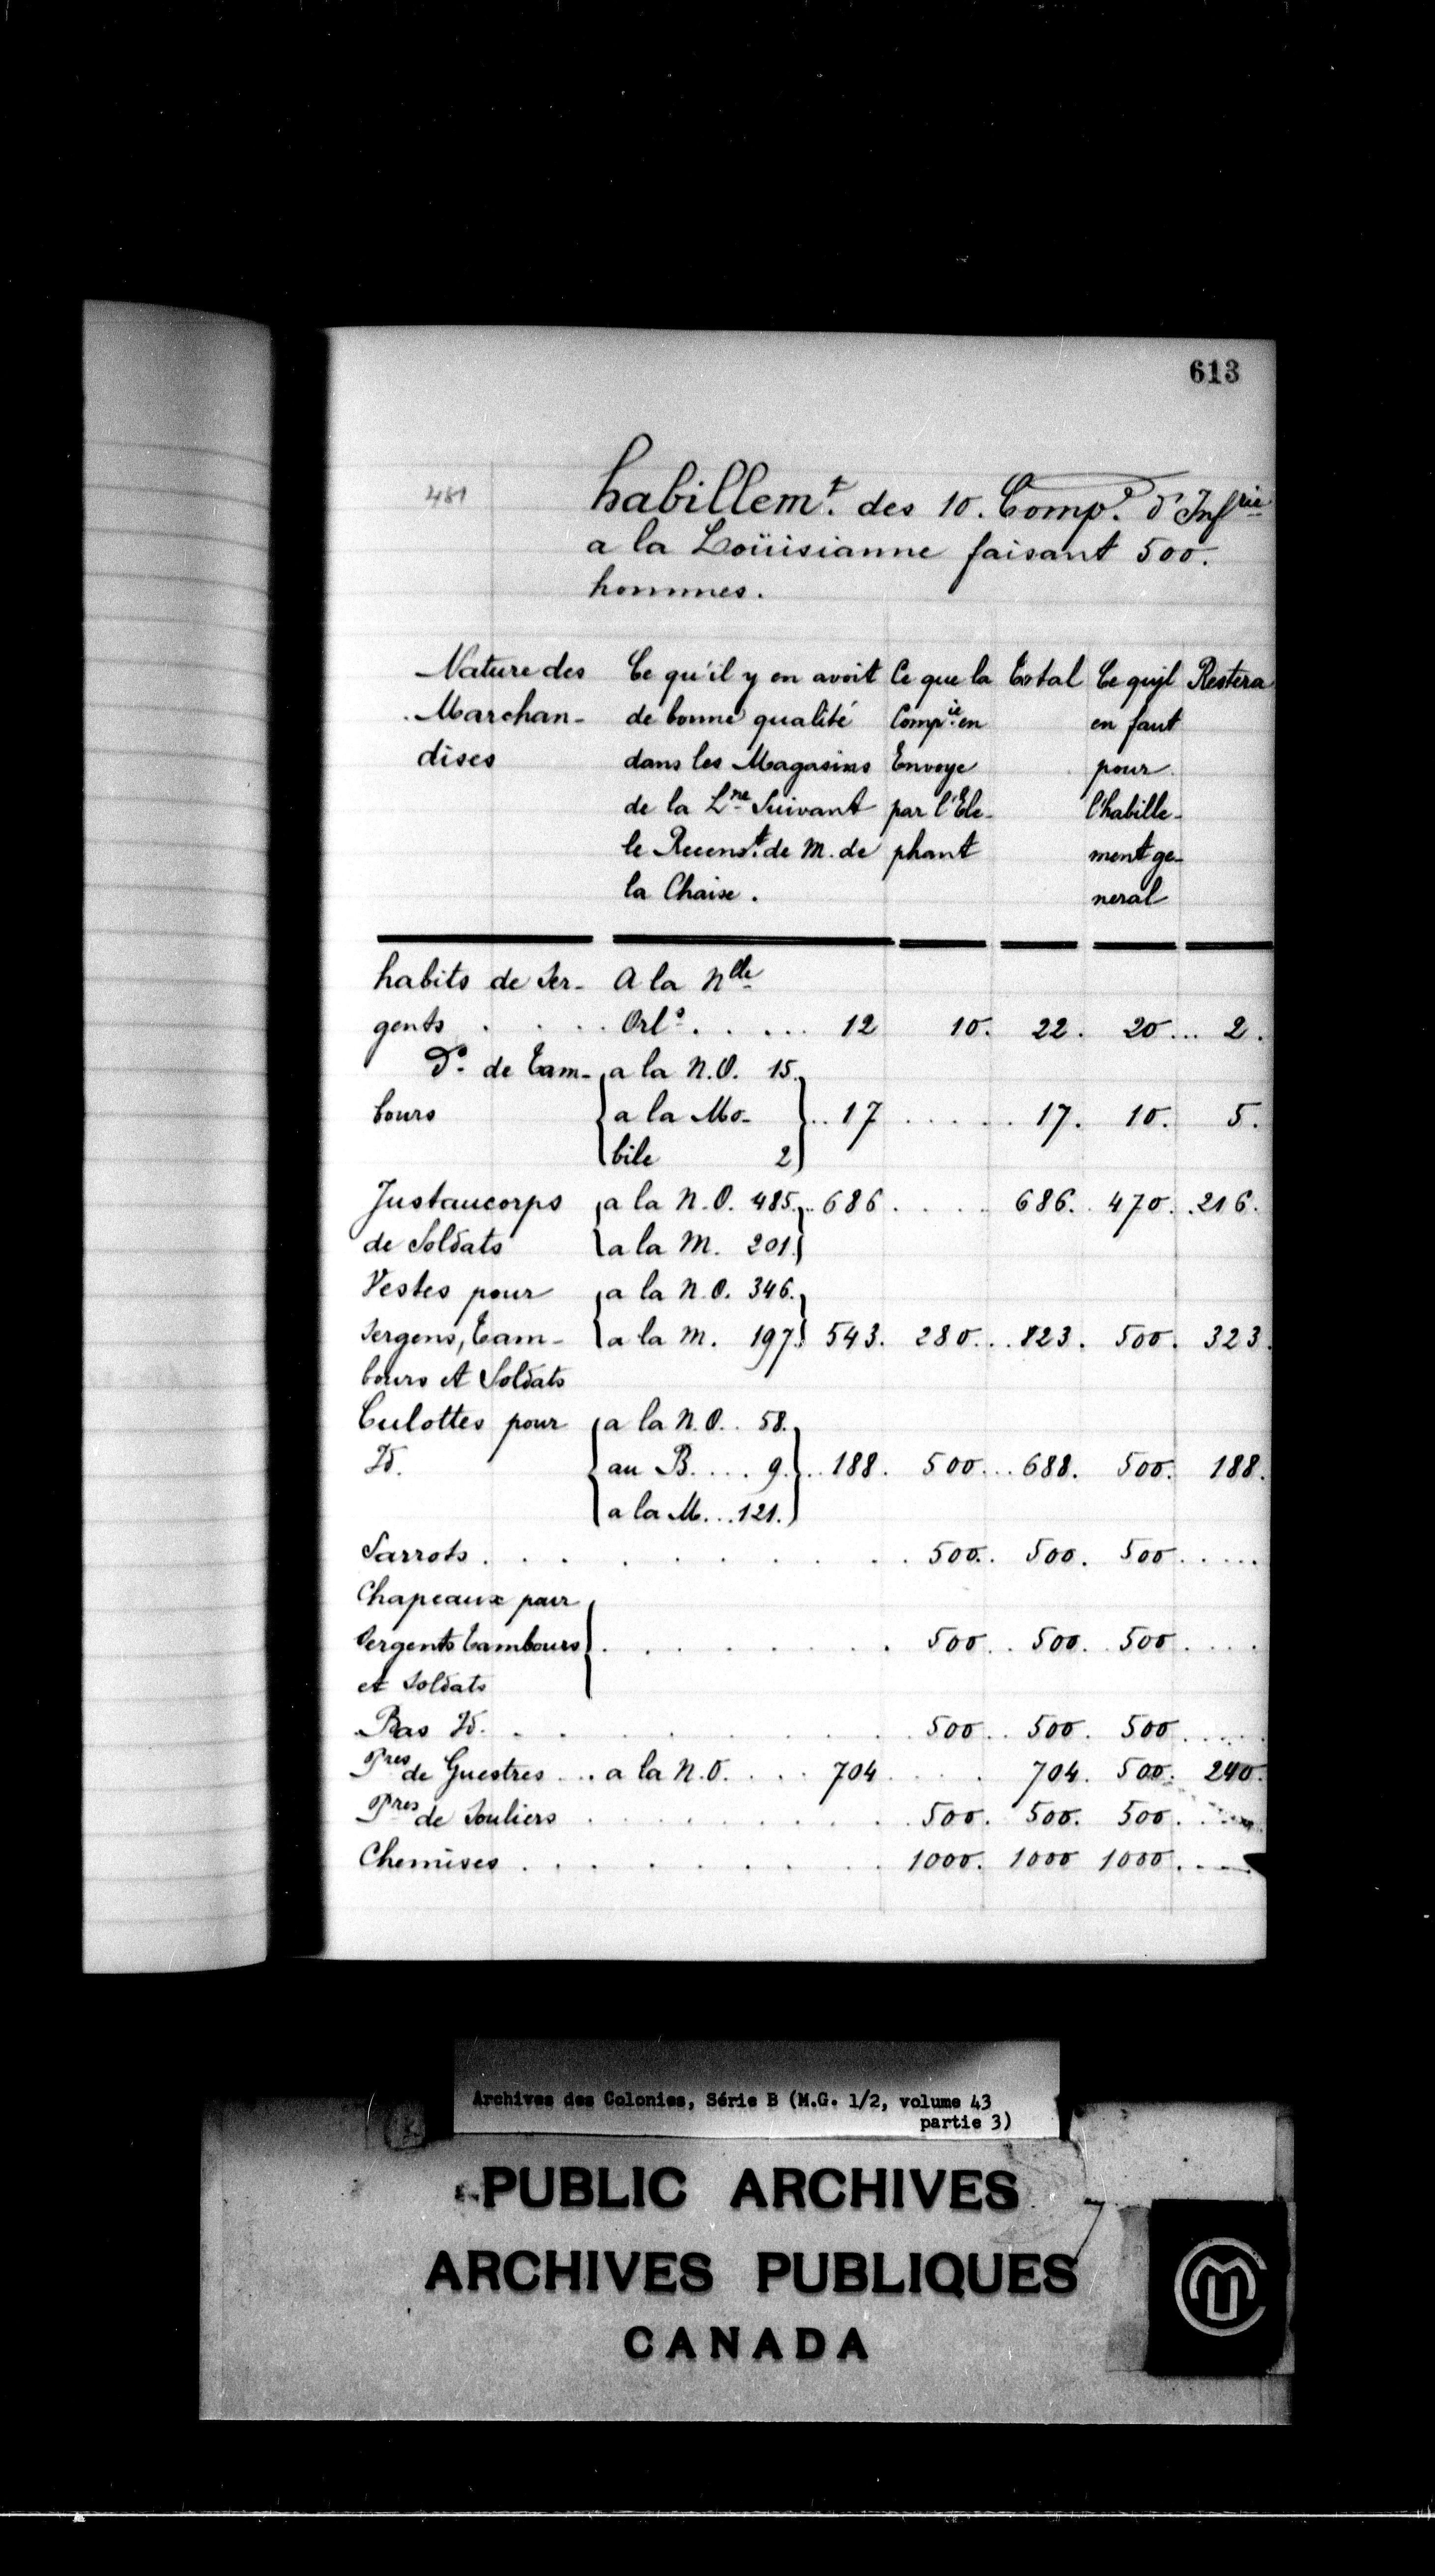 613
481
habillem.t des 10. Comp.e d'Inf.rie
a la Loüisianne faisant 500.
hommes.
Nature des Ce qu'il y en avoit Ce que la Total Ce qu'jl Restera
Marchan- de bonne qualité Comp.ie en en faut
dises dans les Magasins Envoye pour
de la L.ne Suivant par l'Ele- l'habille-
le Recens.t de M. de phant ment ge-
la Chaise. neral
habits de Ser- A la N.lle
gents . . . . Orl.s . . . . . 12 10. 22. 20 ... 2.
D.o de Tam- a la N.O. 15.
bours a la Mo- .. 17 . . . . . 17. 10. 5.
bile 2
Justaucorps a la N.O. 485. .. 686 . . . . 686. 470. .216.
de Soldats a la M. 201.
Vestes pour a la N.O. 346.
Sergens, Tam- a la M. 197. 543. 280 ... 823. 500. 323.
bours et Soldats
Culottes pour a la N.O. . 58.
Id. au B. . . . 9. .. 188. 500 ... 688. 500. 188.
a la M. .. 121.
Sarrots . . . . . . . . . 500. . 500. 500 . . . . .
Chapeaux pour
Sergents tambours . . . . . . . . 500 . . 500. . 500 . . . .
et Soldats
Bas Id. . . . . . . . . 500 . . 500. 500 . . . . .
P.res de Guestres ... a la N.O. . . . 704 . . . 704. 500. 240.
P.res de Souliers . . . . . . . . . 500. 500. 500 . . .
Chemises . . . . . . . . . 1000. 1000 1000 . . .
Archives des Colonies, Série B (M.G. 1/2, volume 43
partie 3)
PUBLIC ARCHIVES
ARCHIVES PUBLIQUES
CANADA